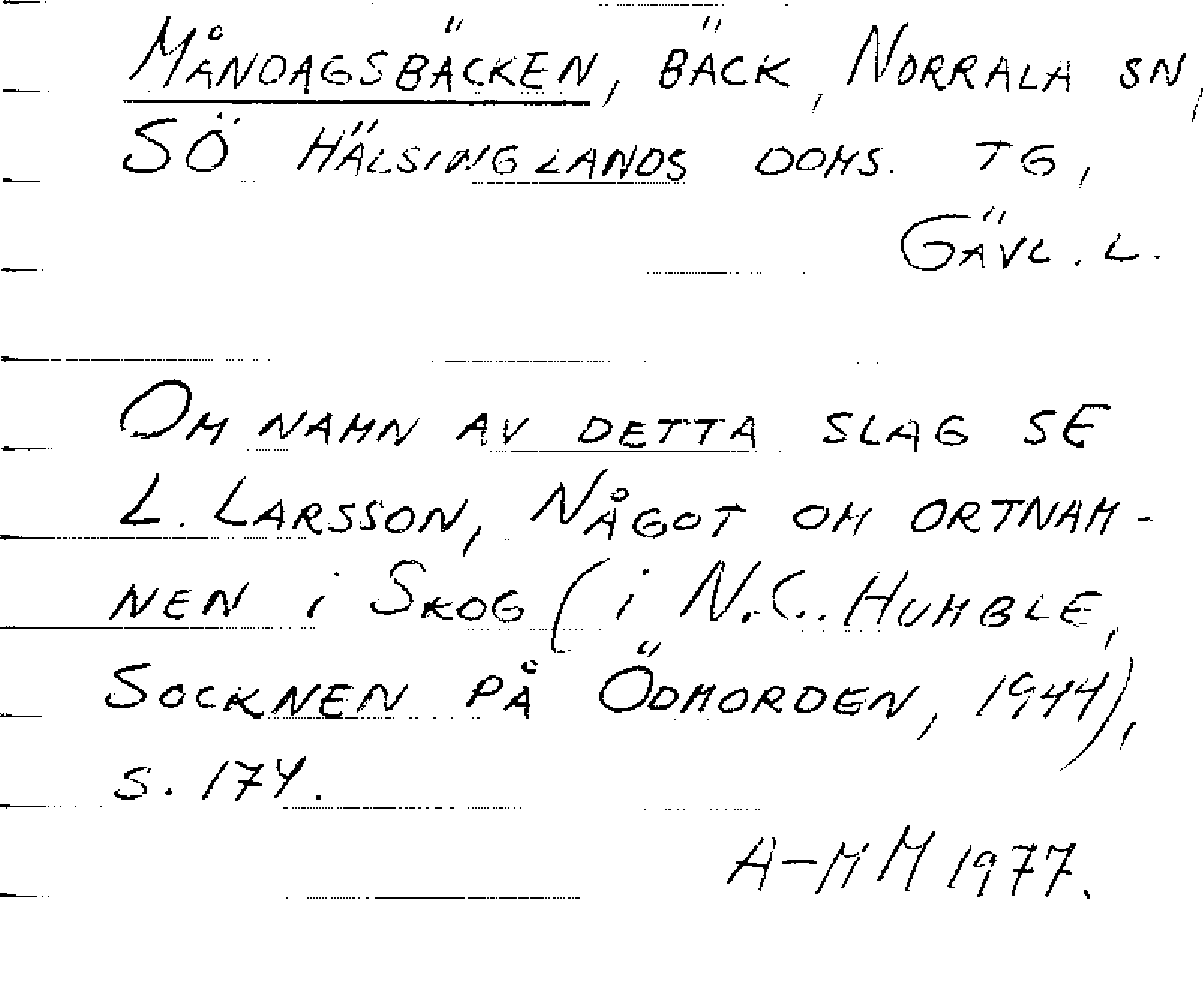 MÅNDAGSBÄCKEN, BÄCK, NORRALA SN,
SÖ HÄLSINGLANDS DOMS. TG,
GÄVL. L.
OM NAMN AV DETTA SLAG SE
L. LARSSON, NÅGOT OM ORTNAM-
NEN i SKOG (i N.C. HUMBLE,
SOCKNEN PÅ ÖDMORDEN, 1944),
S. 174.
A-MM 1977.